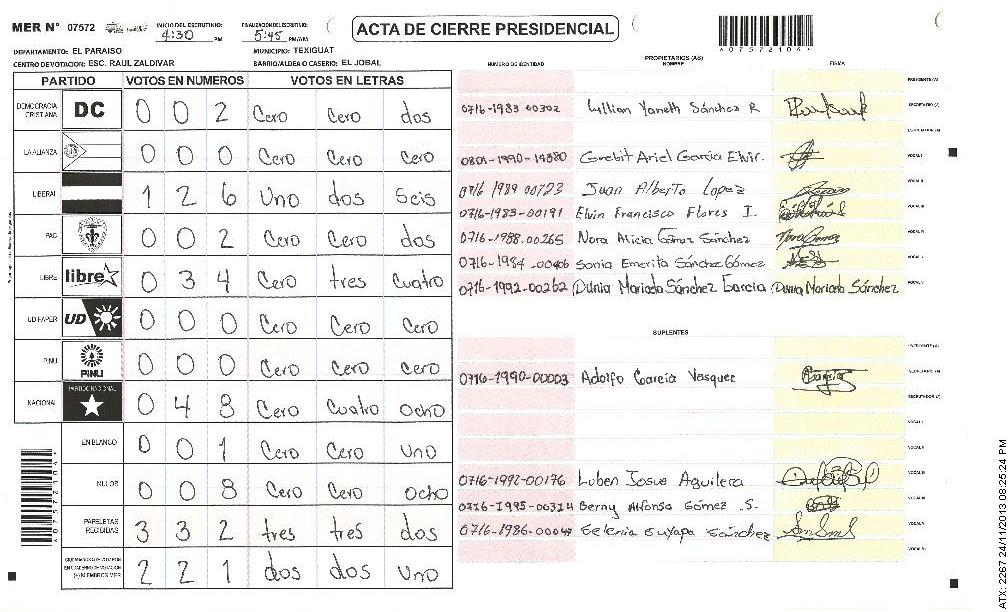 MER N° 07572
INICIO DEL ESCRUTINIO: 4:30 PM
FINALIZACION DEL ESCRITINIO: 5:45 PM/AM
ACTA DE CIERRE PRESIDENCIAL
07572104
DEPARTAMENTO: EL PARAISO
MUNICIPIO: TEXIGUAT
CENTRO DE VOTACION: ESC. RAUL ZALDIVAR
BARRIO/ALDEA O CASERIO: EL JOBAL
PARTIDO VOTOS EN NUMEROS VOTOS EN LETRAS
DEMOCRACIA CRISTIANA DC 0 0 2 Cero Cero dos
LA ALIANZA 0 0 0 Cero Cero Cero
LIBERAL 1 2 6 Uno dos Seis
PAC 0 0 2 Cero Cero dos
LIBRE libre 0 3 4 Cero tres Cuatro
UD FAPER UD 0 0 0 Cero Cero Cero
PINU PINU 0 0 0 Cero Cero Cero
NACIONAL PARTIDO NACIONAL 0 4 8 Cero Cuatro Ocho
EN BLANCO 0 0 1 Cero Cero Uno
NULOS 0 0 8 Cero Cero Ocho
PAPELETAS RECIBIDAS 3 3 2 tres tres dos
2 2 1 dos dos Uno
07572104
PROPIETARIOS (AS)
NUMERO DE IDENTIDAD NOMBRE FIRMA
PRESIDENTE (A)
0716-1983 00302 Lillian Yaneth Sánchez R SECRETARIO (A)
ESCRUTADOR (A)
0801-1990-14880 Grebit Ariel Garcia Elvir. VOCAL I
0716 1989 00723 Juan Alberto Lopez VOCAL II
0716-1983-00191 Elvin Francisco Flores I. VOCAL III
0716-1988.00265 Nora Alicia Gómez Sánchez VOCAL IV
0716-1984-00406 Sonia Emerita Sánchez Gómez VOCAL V
0716-1992-00262 Dunia Maricela Sánchez Garcia Dunia Maricela Sánchez VOCAL VI
SUPLENTES
PRESIDENTE (A)
0716-1990-00003 Adolfo Garcia Vasquez SECRETARIO (A)
ESCRUTADOR (A)
VOCAL I
VOCAL II
0716-1992-00176 Luben Josue Aguilera VOCAL III
0716-1995-00314 Berny Alfonso Gómez .S. VOCAL IV
0716-1986-00049 Selenia Suyapa Sánchez VOCAL V
VOCAL VI
ATX: 2267 24/11/2013 08:25:24 PM